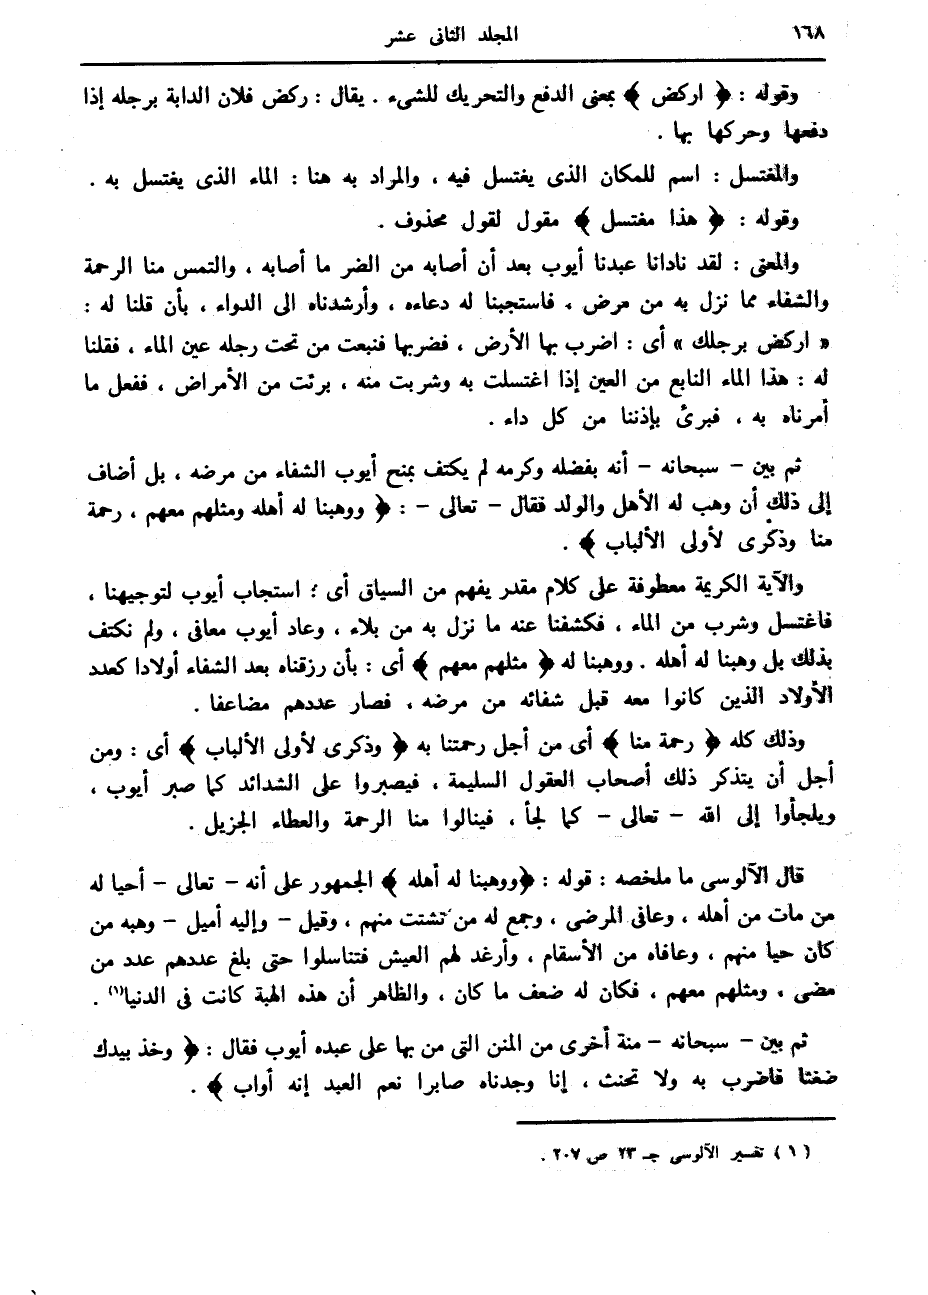 ١٦٨
المجلد الثانى عشر
وقوله : ﴿ اركض ﴾ بمعنى الدفع والتحريك للشىء . يقال : ركض فلان الدابة برجله إذا
دفعها وحركها بها .
والمغتسل : اسم للمكان الذى يغتسل فيه ، والمراد به هنا : الماء الذى يغتسل به .
وقوله : ﴿ هذا مغتسل ﴾ مقول لقول محذوف .
والمعنى : لقد نادانا عبدنا أيوب بعد أن أصابه من الضر ما أصابه ، والتمس منا الرحمة
والشفاء مما نزل به من مرض ، فاستجبنا له دعاءه ، وأرشدناه الى الدواء ، بأن قلنا له :
« اركض برجلك » أى : اضرب بها الأرض ، فضربها فنبعت من تحت رجله عين الماء ، فقلنا
له : هذا الماء النابع من العين إذا اغتسلت به وشربت منه ، برئت من الأمراض ، ففعل ما
أمرناه به ، فبرئ بإذننا من كل داء .
ثم بين – سبحانه – أنه بفضله وكرمه لم يكتف بمنح أيوب الشفاء من مرضه ، بل أضاف
إلى ذلك أن وهب له الأهل والولد فقال – تعالى – : ﴿ ووهبنا له أهله ومثلهم معهم ، رحمة
منا وذكرى لأولى الألباب ﴾ .
والآية الكريمة معطوفة على كلام مقدر يفهم من السياق أى : استجاب أيوب لتوجيهنا ،
فاغتسل وشرب من الماء ، فكشفنا عنه ما نزل به من بلاء ، وعاد أيوب معافى ، ولم نكتف
بذلك بل وهبنا له أهله . ووهبنا له ﴿ مثلهم معهم ﴾ أى : بأن رزقناه بعد الشفاء أولادا كعدد
الأولاد الذين كانوا معه قبل شفائه من مرضه ، فصار عددهم مضاعفا .
وذلك كله ﴿ رحمة منا ﴾ أى من أجل رحمتنا به ﴿ وذكرى لأولى الألباب ﴾ أى : ومن
أجل أن يتذكر ذلك أصحاب العقول السليمة ، فيصبروا على الشدائد كما صبر أيوب ،
ويلجأوا إلى الله – تعالى – كما لجأ ، فينالوا منا الرحمة والعطاء الجزيل .
قال الآلوسى ما ملخصه : قوله : ﴿ووهبنا له أهله ﴾ الجمهور على أنه – تعالى – أحيا له
من مات من أهله ، وعافى المرضى ، وجمع له من تشتت منهم ، وقيل – وإليه أميل – وهبه من
كان حيا منهم ، وعافاه من الأسقام ، وأرغد لهم العيش فتناسلوا حتى بلغ عددهم عدد من
مضى ، ومثلهم معهم ، فكان له ضعف ما كان ، والظاهر أن هذه الهبة كانت فى الدنيا(١) .
ثم بين – سبحانه – منة أخرى من المنن التى من بها على عبده أيوب فقال : ﴿ وخذ بيدك
ضغثا فاضرب به ولا تحنث ، إنا وجدناه صابرا نعم العبد إنه أواب ﴾ .
( ١ ) تفسير الآلوسى جـ ٢٣ ص ٢٠٧ .